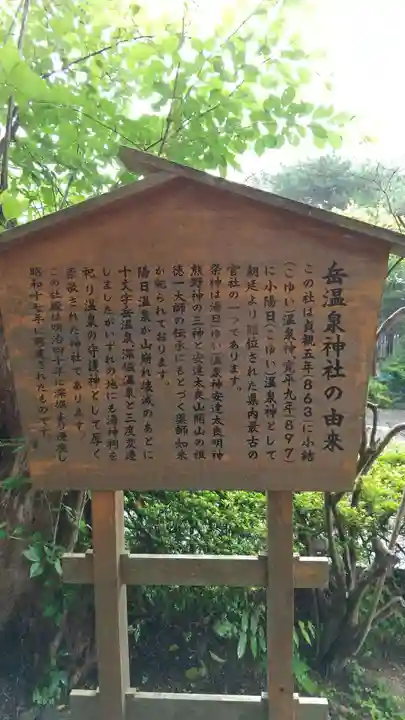 岳温泉神社の由来
この社は貞観五年(863)に小結
(こゆい)温泉神、寛平九年(897)
に小陽日(こゆい)温泉神として
朝廷より贈位された県内最古の
官社の一つであります。
祭神は湯日(ゆい)温泉神安達太良明神
熊野神の三神と安達太良山開山の祖
徳一大師の伝承にもとづく薬師如来
が祀られております。
陽日温泉が山崩れ壊滅のあとに
十文字岳温泉、深堀温泉と三度変遷
しましたがいずれの地にも湯神社を
祀り温泉の守護神として厚く
崇敬された神社であります。
この社殿は明治四十年に深堀より遷座し
昭和十七年に
されたものです。